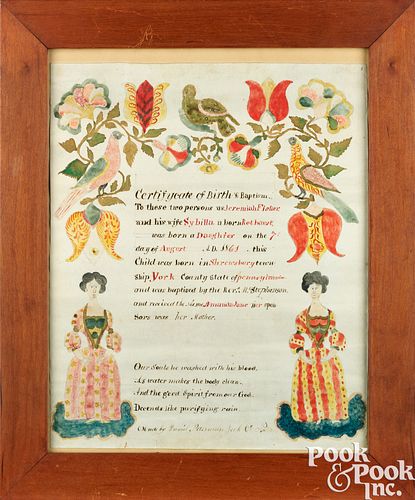 Certifycate of Birth & Baptism.
To these two persons as Jeremiah
and his wife Sybilla a born
was born a Daughter on the 7
day of August AD. 1861 this
Child was born in Shrewsbury town
ship York County State of
and was baptised by the Rev. Stephenson
and recived the name Amanda Jane her spon
sors was her Mother.
Our Souls he washed with his blood,
As water makes the body clean.
And the good Spirit from our God.
Decends like purifying rain.
Made by Daniel Peterman
POOK
& POOK
Inc.